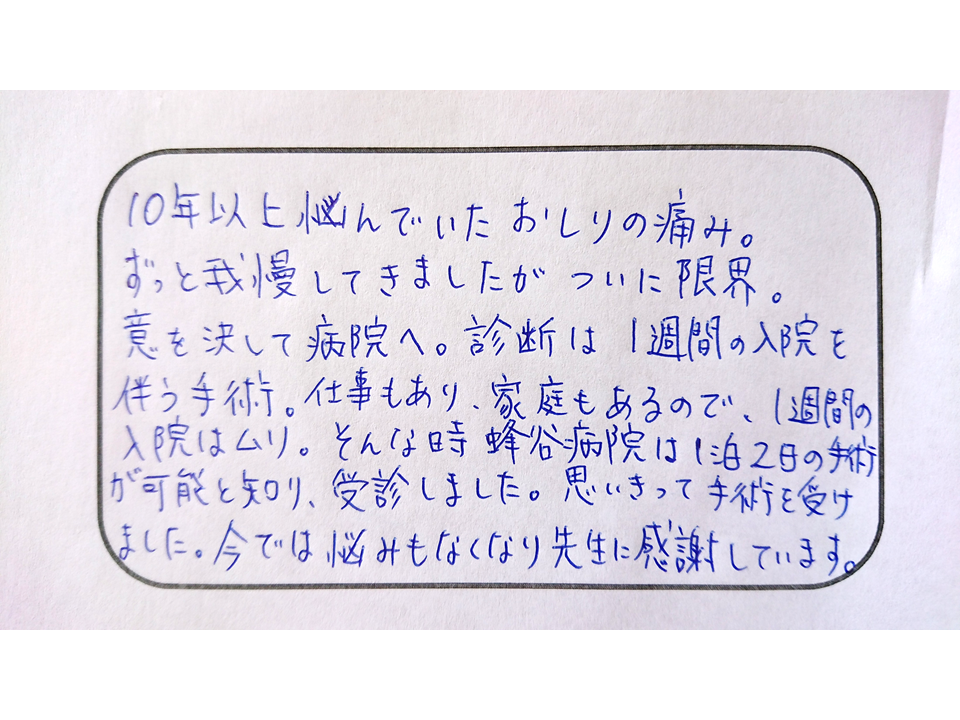 10年以上悩んでいた おしりの痛み。
ずっと我慢してきましたが ついに限界。
意を決して病院へ。診断は 1週間の入院を
伴う手術。仕事もあり、家庭もあるので、1週間の
入院はムリ。そんな時 蜂谷病院は1泊2日の手術
が可能と知り、受診しました。思いきって 手術を受け
ました。今では悩みもなくなり先生に感謝しています。